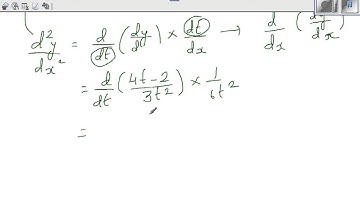 d²y/dx² = d/dt (dy/d) × dt/dx → d/dx (dy/dx)
= d/dt (4t-2/3t²) × 1/6t²
=